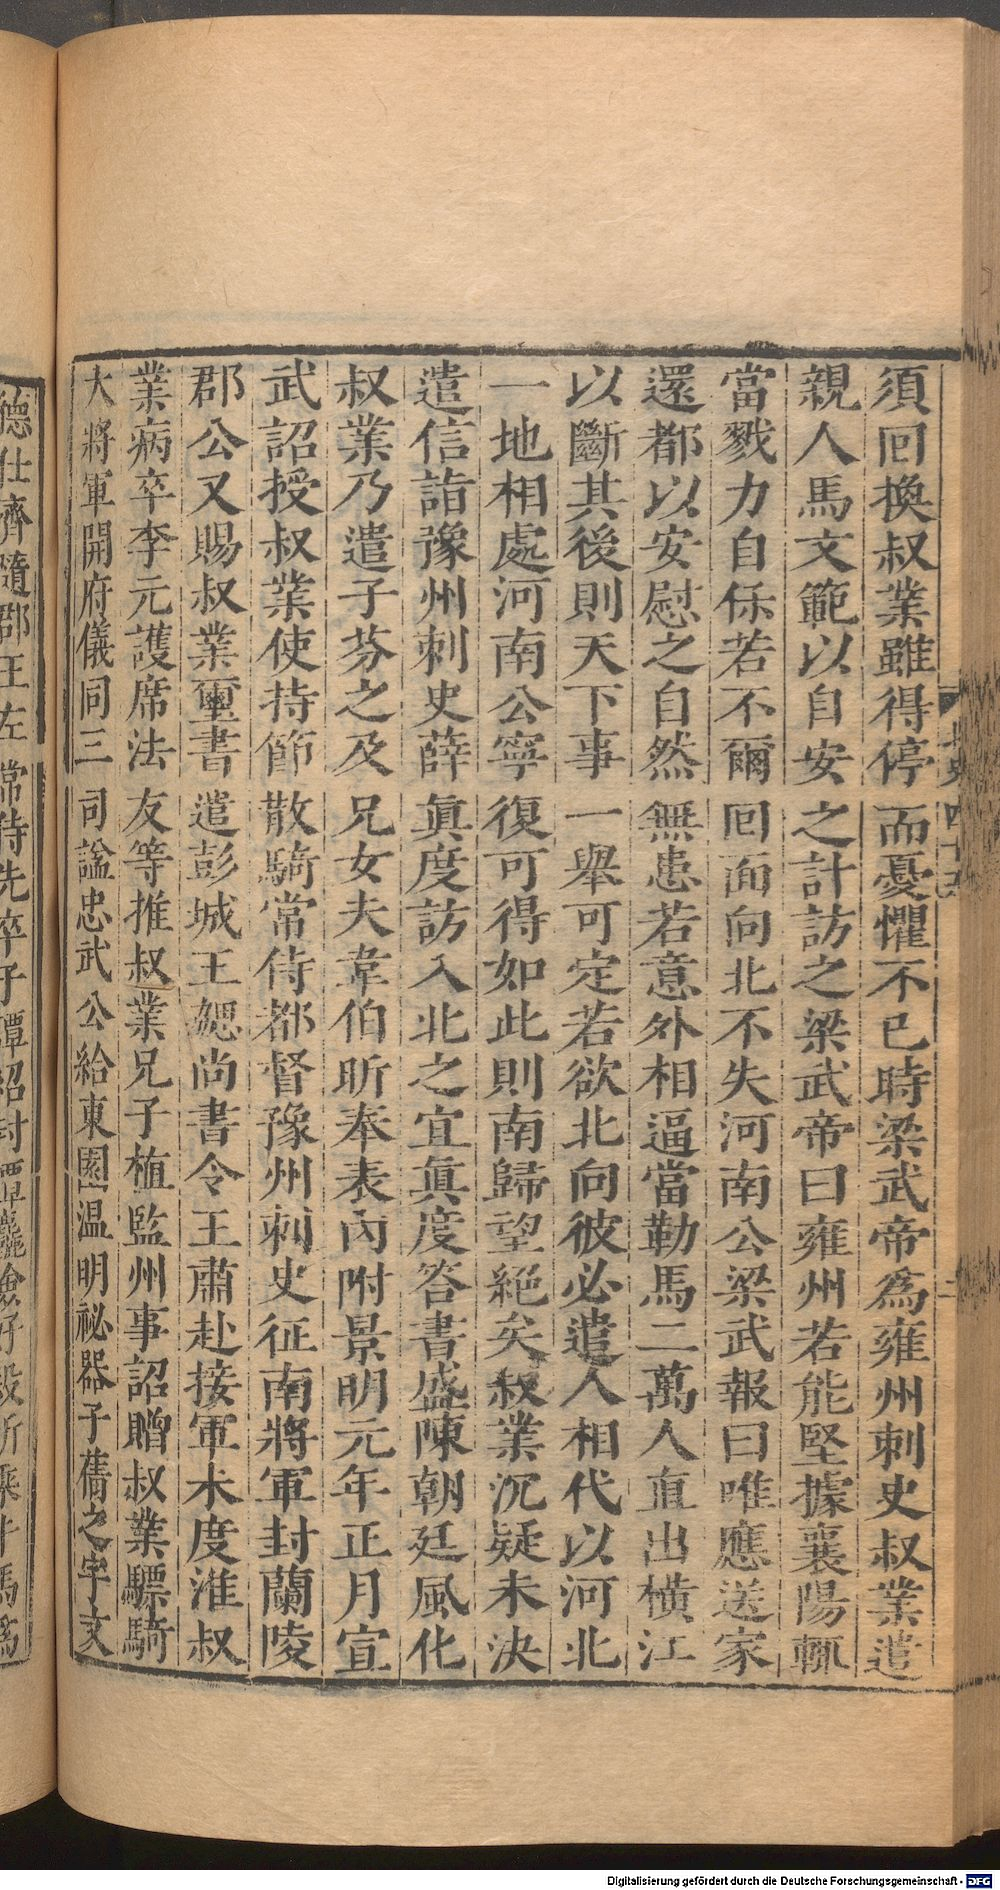 須回換叔業雖得停而憂懼不已時梁武帝為雍州刺史叔業遣
親人馬文範以自安之計訪之梁武帝曰雍州若能堅據襄陽輒
當戮力自保若不爾回面向北不失河南公梁武報曰唯應送家
還都以安慰之自然無患若意外相逼當勒馬二萬人直出橫江
以斷其後則天下事一舉可定若欲北向彼必遣人相代以河北
一地相處河南公寧復可得如此則南歸望絕矣叔業沉疑未決
遣信詣豫州刺史薛眞度訪入北之宜眞度答書盛陳朝廷風化
叔業乃遣子芬之及兄女夫韋伯昕奉表內附景明元年正月宣
武詔授叔業使持節散騎常侍都督豫州刺史征南將軍封蘭陵
郡公又賜叔業璽書遣彭城王勰尚書令王肅赴接軍未度淮叔
業病卒李元護席法友等推叔業兄子植監州事詔贈叔業驃騎
大將軍開府儀同三司諡忠武公給東園温明祕器子蒨之字文
德仕齊隨郡王左常侍先卒子譚紹封譚麤險好殺所乘牛馬為
Digitalisierung gefördert durch die Deutsche Forschungsgemeinschaft - DFG